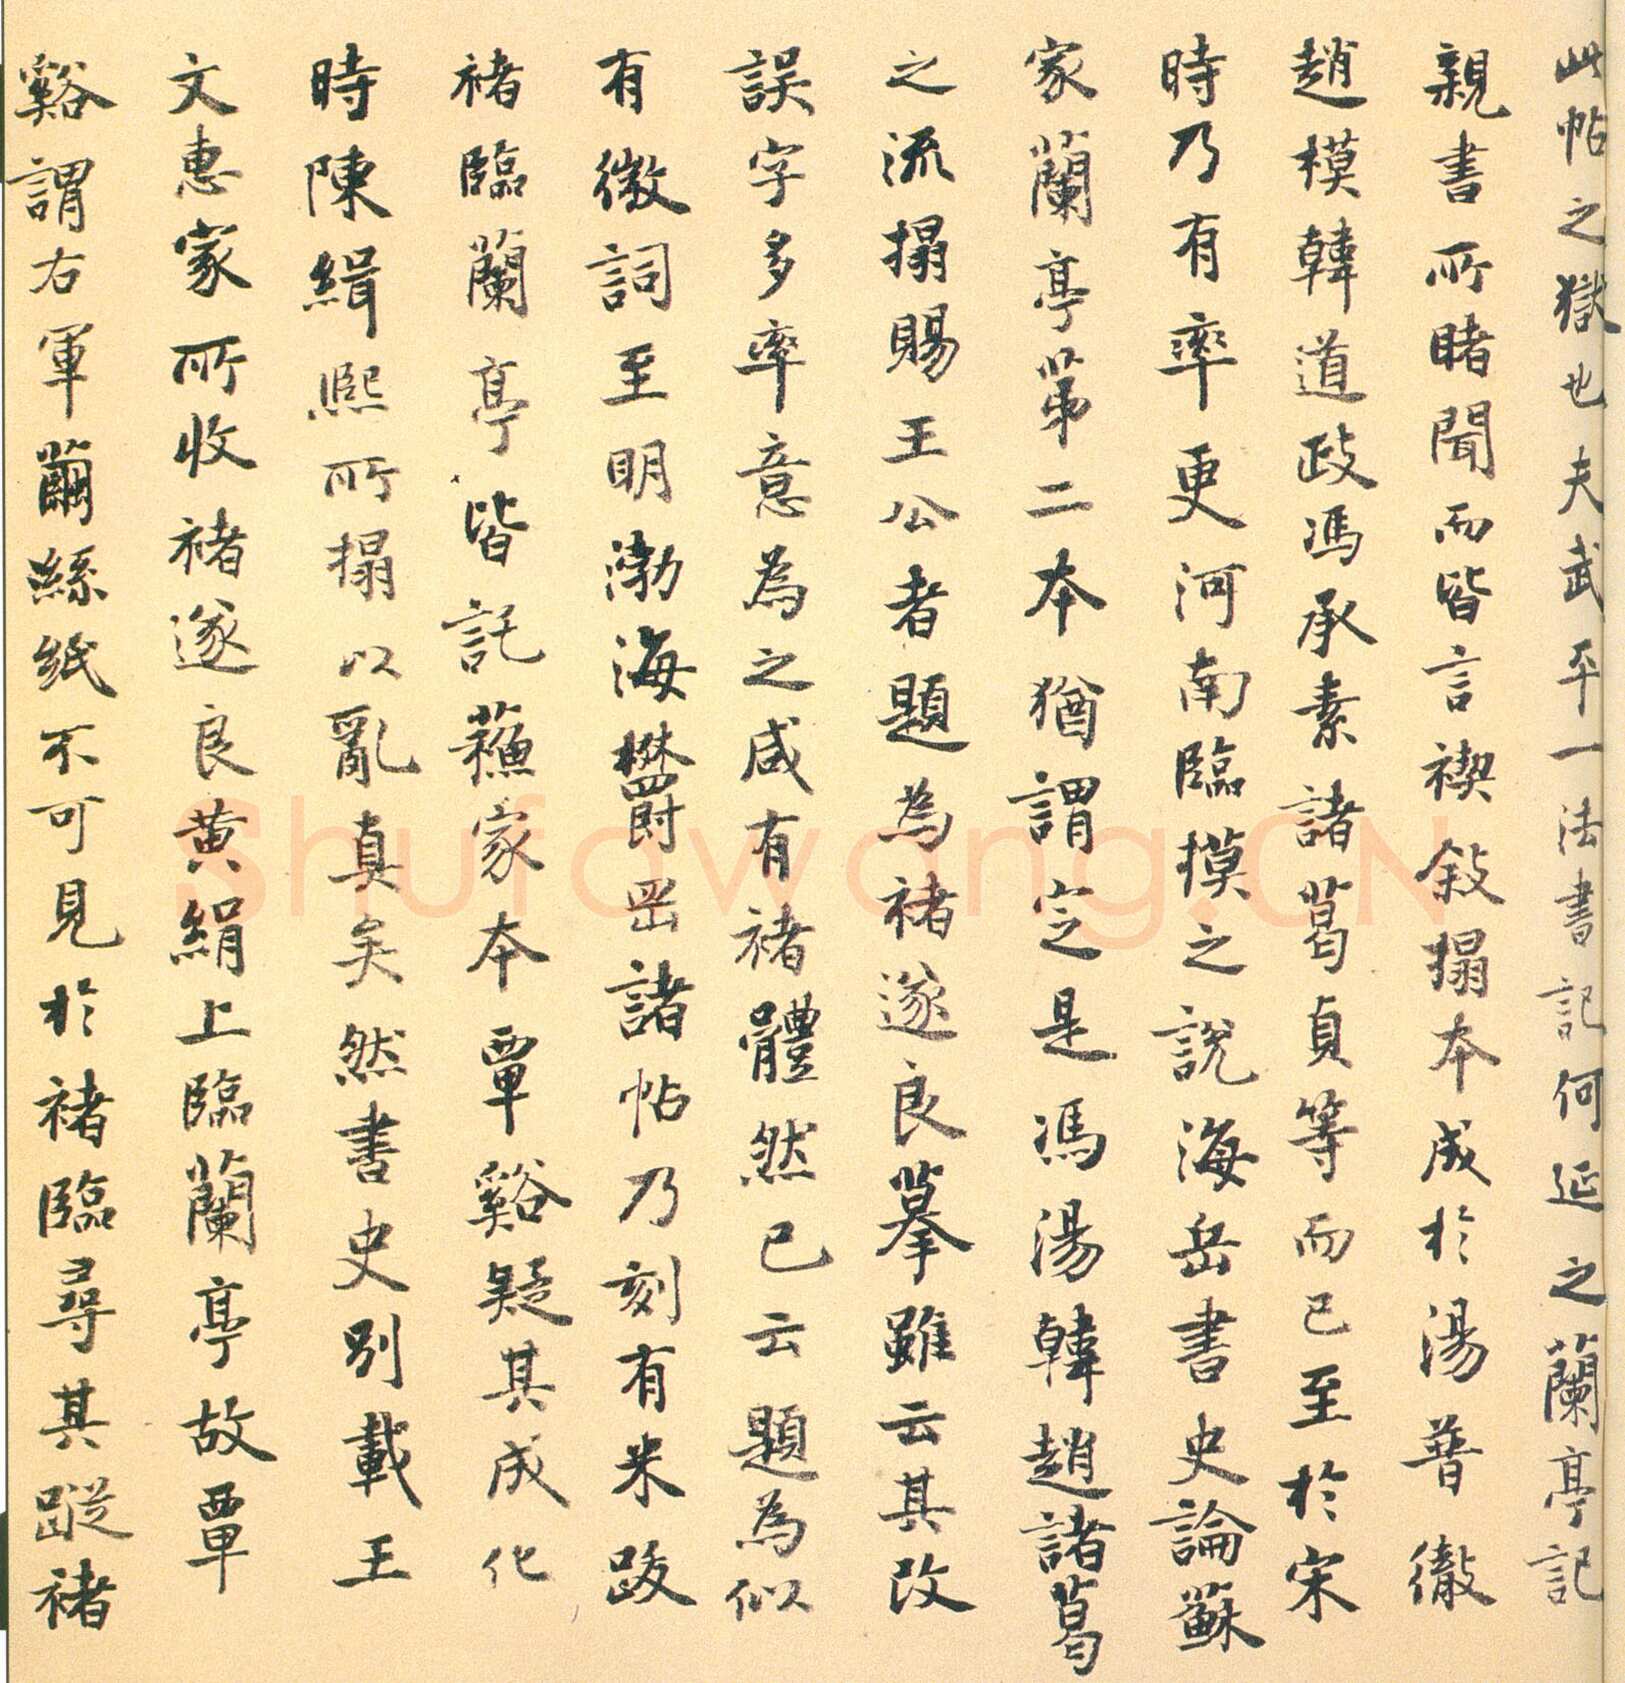 此帖之獄也夫武平一法書記何延之蘭亭記
親書所睹聞而皆言禊敘搨本成於湯普徹
趙模韓道政馮承素諸葛貞等而已至於宋
時乃有率更河南臨摸之說海岳書史論蘇
家蘭亭第二本猶謂定是馮湯韓趙諸葛
之流搨賜王公者題為褚遂良摹雖云其改
誤字多率意為之咸有褚體然已云題為似
有微詞至明渤海欎岡諸帖乃刻有米跋
褚臨蘭亭皆託蘓家本覃谿疑其成化
時陳緝熙所搨以亂真矣然書史別載王
文惠家所收褚遂良黃絹上臨蘭亭故覃
谿謂右軍繭絲紙不可見於褚臨尋其蹤褚
Shufawang.CN